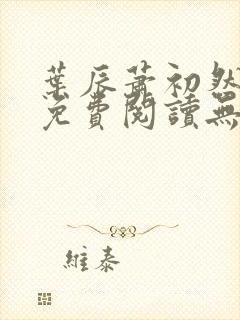 葉辰蕭初然
免費閱讀無
維泰